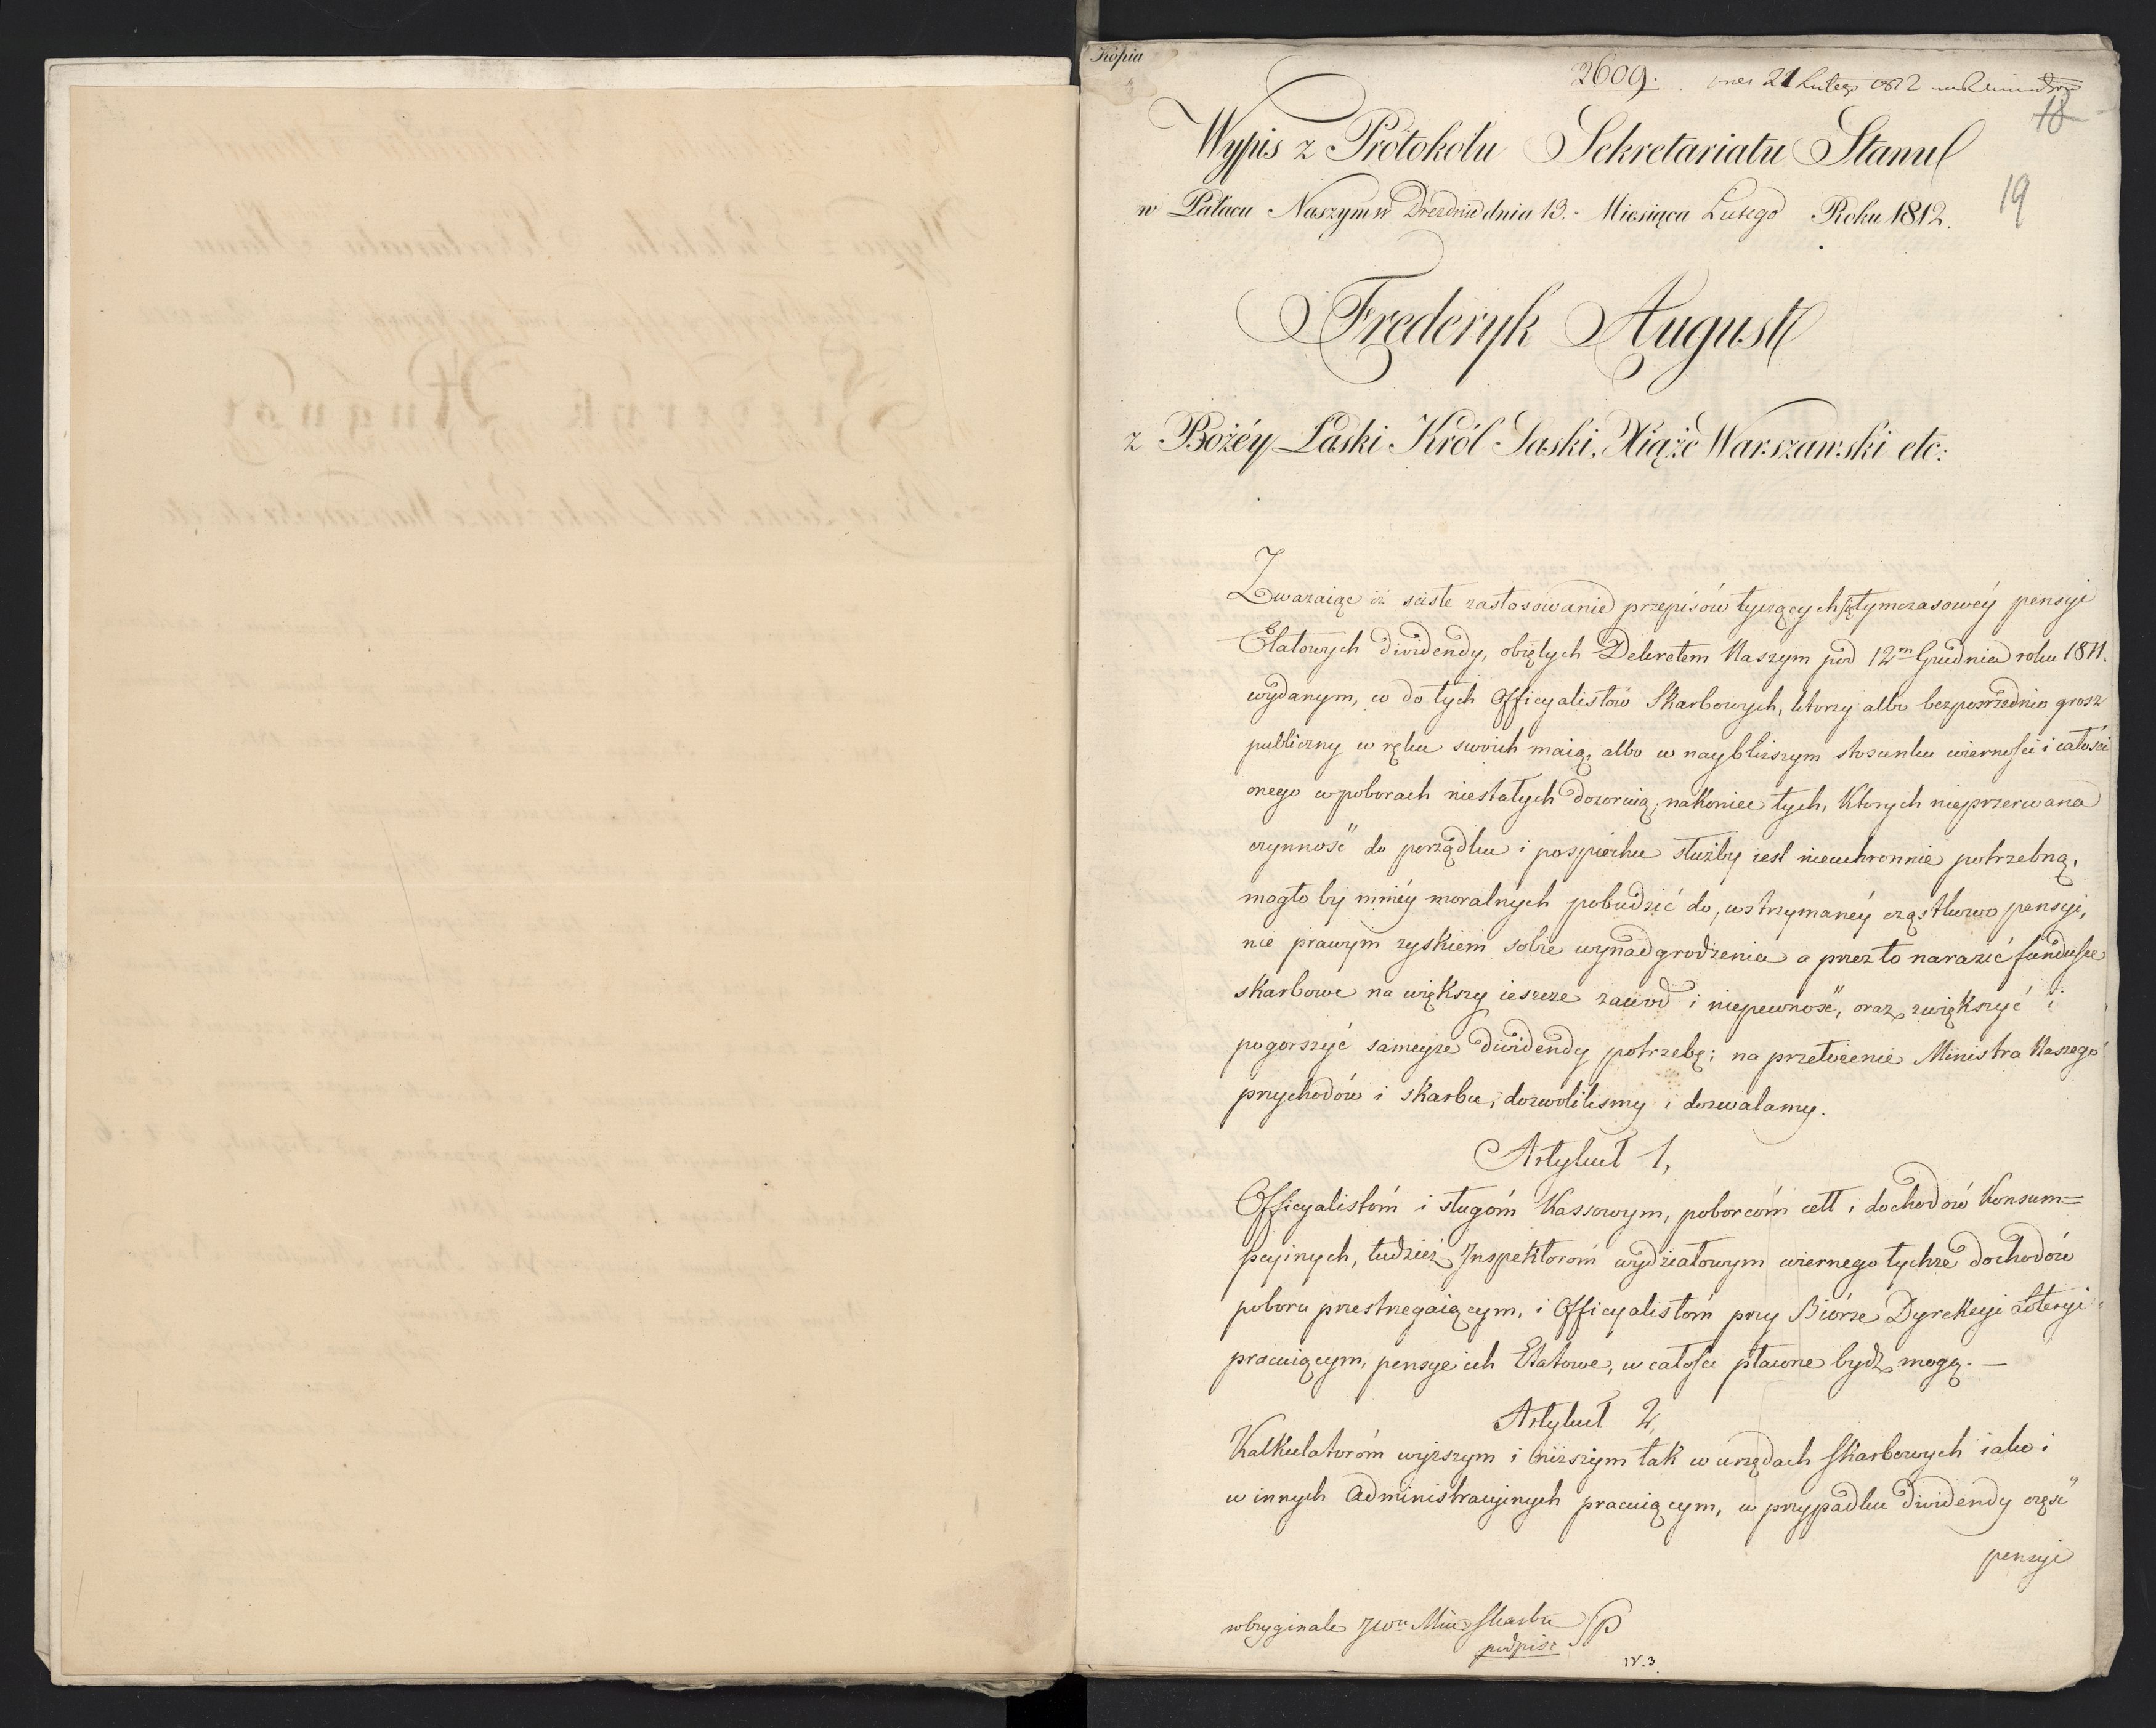 Kópia
2609. 21 Lutego 1812
18
Wypis z Protokołu Sekretariatu Stanu
w Pałacu Naszym w Dreznie dnia 13. Miesiąca Lutego Roku 1812.
19
Frederyk August
z Bożéy Łaski Król Saski, Xiąże Warszawski etc:
Zwazaiąc iż scisłe zastosowanie przepisów tyczących się tymczasowéy pensyi
Etatowych dividendy, obiętych Dekretem Naszym pod 12m Grudnia roku 1811.
wydanym, co do tych Officyalistów Skarbowych, ktorzy albo bezpośrzednio grosz
publiczny w ręku swoich maią, albo w naybliższym stosunku wierności i całości
onego w poborach niestałych dozoruią, nakoniec tych, Ktorych nieprzerwana
czynność do porządku i pospiechu służby iest nieuchronnie potrzebną,
mogło by mniéy moralnych pobudzić do, wstrzymanéy cząstkowo pensyi,
nie prawym zyskiem sobie wynadgrodzenia a przez to narazić fundusze
skarbowe na większy ieszcze zawod i niepewność, oraz zwiększyć i
pogorszyć sameyże dividendy potrzebę; na przełożenie Ministra Naszego
przychodów i skarbu, dozwolilismy i dozwalamy.
Artykuł 1,
Officyalistóm i sługóm Kassowym, poborcóm cełł i dochodów Konsum=
pcyinych, tudzież Inspektoróm wydziałowym wiernego tychże dochodów
poboru przestrzegaiącym, i Officyalistóm przy Biórze Dyrekcyi Loteryi
pracuiącym, pensye ich Etatowe, w całości płacone bydź mogą. —
Artykuł 2,
Kalkulatoróm wyższym i niższym tak w urzędach skarbowych iako i
w innych Administracyinych pracuiącym, w przypadku dividendy część
pensyi
w oryginale JWn Min Skarbu
podpisz
IV.3.